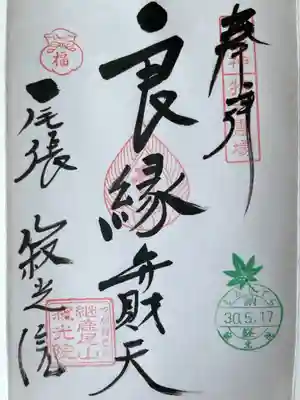 奉拝
良縁弁財天
尾張
寂光院
福
継鹿尾山
寂光院
納
30.5.17
経